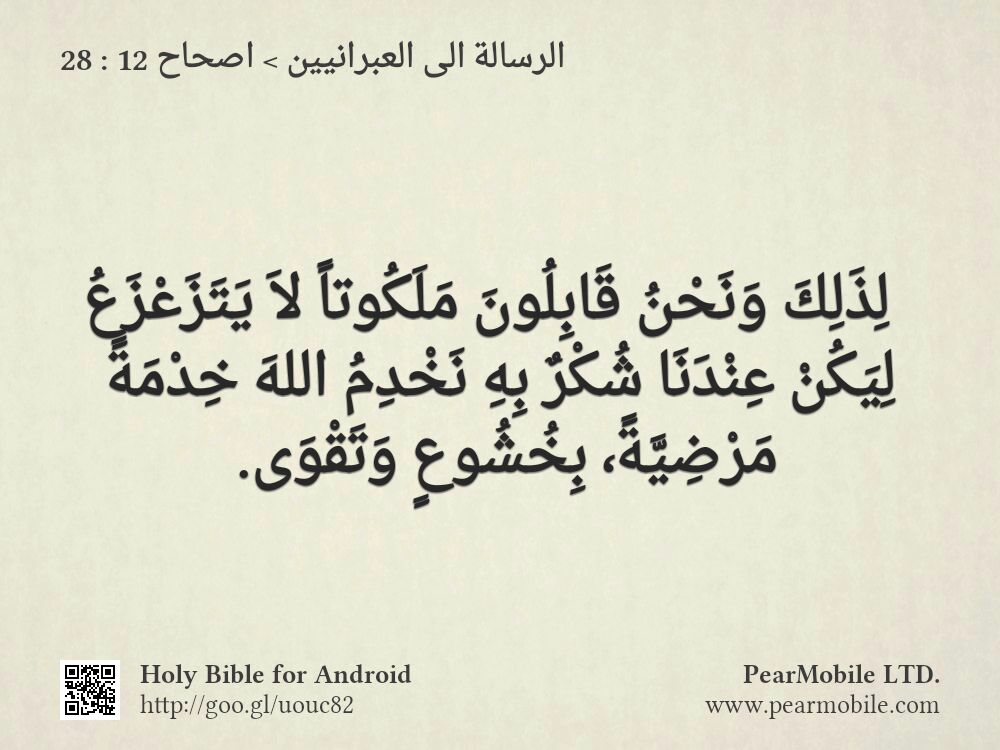 الرسالة الى العبرانيين > اصحاح 12 : 28
لِذَلِكَ وَنَحْنُ قَابِلُونَ مَلَكُوتاً لاَ يَتَزَعْزَعُ
لِيَكُنْ عِنْدَنَا شُكْرٌ بِهِ نَخْدِمُ اللهَ خِدْمَةً
مَرْضِيَّةً، بِخُشُوعٍ وَتَقْوَى.
Holy Bible for Android
http://goo.gl/uouc82
PearMobile LTD.
www.pearmobile.com